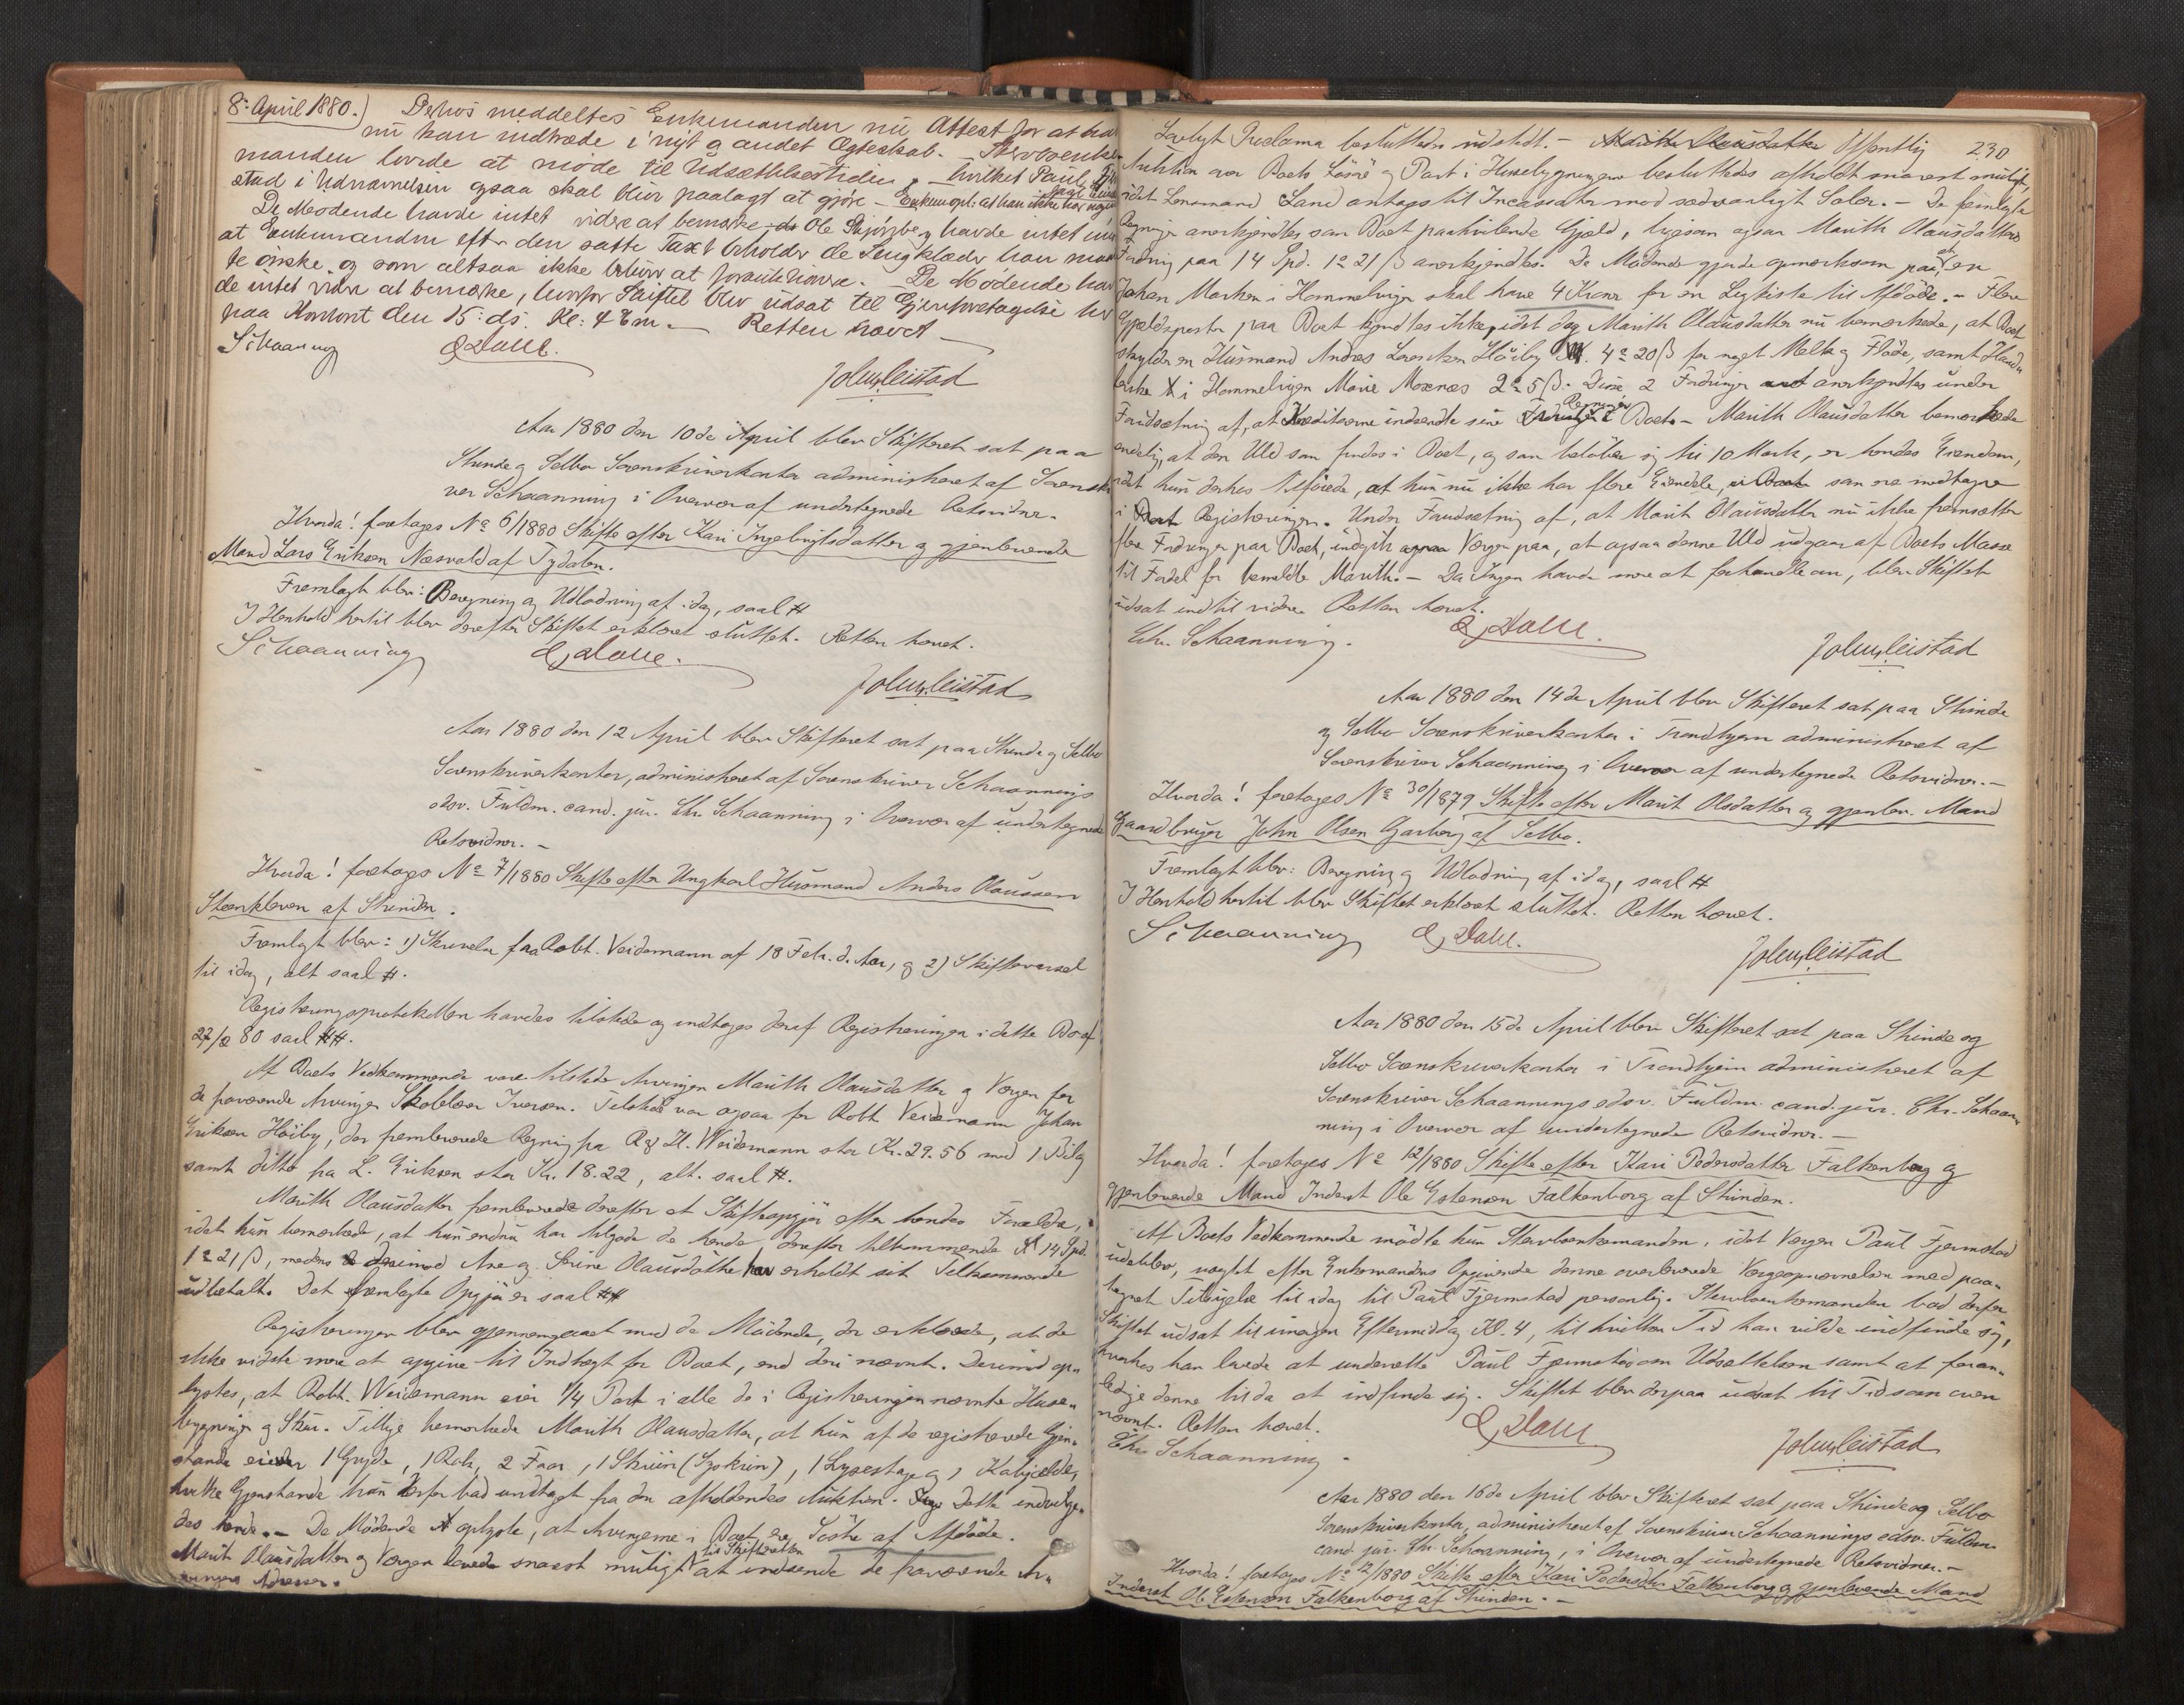 8: April 1880.) Derhos meddeltes Enkemanden nu Attest for at han
nu kan indtræde i nyt og andet Ægteskab. – Stervboenke
manden lovede at møde til Udsættelsestiden, – hvilket Paul
stad i Udnævnelsen ogsaa skal blive paalagt at gjøre – Enkem. opl: at han ikke har
De Mødende havde intet videre at bemærke Ole havde intet
at Enkemanden efter den satte Taxt beholder de Sengklæder han
te ønske og som altsaa ikke behøve at forauktionere. – De Mødende hav
de intet videre at bemærke, hvorfor Skiftet blev udsat til Gjenforetagelse her
paa Kontoret den 15: ds. Kl: 4 Em. – Retten hævet –
Schaanning ODahl.
John Leistad
Aar 1880 den 10de April blev Skifteret sat paa
Strinde og Selbo Sorenskriverkontor administreret af Sorenskri
ver Schaanning i Overvær af undertegnede Retsvidner.
Hvorda! foretages No 6/1880 Skifte efter Kari Ingebrigtsdatter og gjenlevende
Mand Lars Eriksen Næsvold af Tydalen.
Fremlagt blev: Beregning og Udlodning af idag, saal #
I Henhold hertil blev derefter Skiftet erklæret sluttet. Retten hævet.
Schaanning ODahl.
John Leistad
Aar 1880 den 12 April blev Skifteret sat paa Strinde og Selbo
Sorenskriverkontor, administreret af Sorenskriver Schaannings
edsv. Fuldm. cand. jur. Chr. Schaanning i Overvær af undertegnede
Retsvidner. –
Hvorda! foretages No 7/1880 Skifte efter Ungkarl Husmand Anders Olaussen
Steenkleven af Strinden.
Fremlagt blev: 1) Skrivelse fra Robt. Veidemann af 18 Febr. d. Aar, og 2) Skiftevarsel
til idag, alt saal #.
Registreringsprotokollen havdes tilstede og indtages deraf Registreringen i dette Bo af
27/2 80 saal ##.
Af Boets Vedkommende vare tilstede Arvingen Marith Olausdatter og Vergen for
de fraværende Arvinger Skolelærer Iversen. Tilstede var ogsaa for Robt Veidemann Johan
Eriksen Høiby, der fremleverede Regning fra R & H. Weidemann stor Kr. 29.56 med 1 Bilag
samt ditto fra L. Eriksen stor Kr. 18.22, alt. saal #.
Marith Olausdatter fremleverede derefter et Skifteopgjør efter hendes Forældre,
idet hun bemærkede, at hun endnu har tilgode de hende derefter tilkommende 14 Spd.
1 ort 21 β, medens derimod Ane og Serine Olausdatter har erholdt sit Tilkommende
udbetalt. Det fremlagte Opgjør er saal ##
Registreringen blev gjennemgaaet med de Mødende, der erklærede, at de
ikke vidste mere at opgive til Indtægt for Boet, end deri nævnt. Derimod op„
lystes, at Robt. Weidemann eier 1/4 Part i alle de i Registreringen nævnte Huse„
bygninger og Skur. Tillige bemærkede Marith Olausdatter, at hun af de registrerede Gjen„
stande eier 1 Gryde, 1 Rok, 2 Faar, 1 Skrin (Syskrin), 1 Lysestage og 1 Kobjelde,
hvilke Gjenstande hun derfor bad undtaget fra den afholdendes Auktion. Dette indvilge„
des hende. – De Mødende oplyste, at Arvingerne i Boet, ere Søstre af Afdøde.
Marit Olausdatter og Vergen lovede snarest muligt til Skifteretten at indsende de fraværende Ar„
vingers Adresser.
230
Lovligt Proclama besluttedes udstedt. – Marithe Olausdatter Offentlig
Auktion over Boets Løsøre og Part i Husebygningerne besluttedes afholdt snarest muligt,
idet Lensmand Land antages til Incassator mod sædvanligt Salær. – De fremlagte
Regninger anerkjendtes som Boet paahvilende Gjæld, ligesom ogsaa Marith Olausdatters
Fordring paa 14 Spd. 1 ort 21 β anerkjendtes. De Mødende gjorde opmærksom paa, at en
Johan Morken i Hommelvigen skal have 4 Kroner for en Ligkiste til Afdøde. – Flere
Gjældsposter paa Boet kjendtes ikke, idet dog Marith Olausdatter nu bemærkede, at Boet
skylder en Husmand Andres Larsen Høiby 4 ort 20 β for noget Melk og Fløde, samt Hand„
lerske i Hommelvigen Marie Moxnæs 2 ort 5 β. Disse 2 Fordringer anerkjendtes under
Forudsætning af, at Kreditorerne indsendte sine Regninger t. Boet. – Marith Olausdatter bemærkede
endelig, at den Uld som findes i Boet, og som beløber sig til 10 Mark, er hendes Eiendom,
idet hun derhos tilføiede, at hun nu ikke har flere Eiendele, som ere medtagne
i Registreringen. Under Forudsætning af, at Marit Olausdatter nu ikke fremsætter
flere Fordringer paa Boet, indgik Vergen paa, at ogsaa denne Uld udgaar af Boets Masse
til Fordel for bemeldte Marith. – Da Ingen havde mere at forhandle om, blev Skiftet
udsat indtil videre. Retten hævet.
Chr. Schaanning. ODahl.
John Leistad
Aar 1880 den 14de April blev Skifteret sat paa Strinde
og Selbo Sorenskriverkontor i Trondhjem administreret af
Sorenskriver Schaanning i Overvær af undertegnede Retsvidner. –
Hvorda! foretages No 30/1879 Skifte efter Marit Olsdatter og gjenlev. Mand
Gaardbruger John Olsen Garberg af Selbo.
Fremlagt blev: Beregning og Udlodning af idag, saal #
I Henhold hertil blev Skiftet erklæret sluttet. Retten hævet.
Schaanning ODahl.
John Leistad
Aar 1880 den 15de April blev Skifteret sat paa Strinde og
Selbo Sorenskriverkontor i Trondhjem administreret af
Sorenskriver Schaannings edsv. Fuldm. cand. jur. Chr. Schaan„
ning i Overvær af undertegnede Retsvidner. –
Hvorda! foretages No 12/1880 Skifte efter Kari Pedersdatter Falkenborg og
gjenlevende Mand Inderst Ole Estensen Falkenborg af Strinden.
Af Boets Vedkommende mødte kun Stervboenkemanden, idet Vergen Paul Fjermstad
udeblev, uagtet efter Enkemandens Opgivende denne overleverede Vergeopnævnelsen med paa„
tegnet Tilsigelse til idag til Paul Fjermstad personlig. Stervboenkemanden bad derfor
Skiftet udsat til imorgen Eftermiddag Kl. 4, til hvilken Tid han vilde indfinde sig,
hvorhos han lovede at underrette Paul Fjermstad om Udsættelsen samt at foran„
ledige denne til da at indfinde sig. Skiftet blev derpaa udsat til Tid som oven
nævnt. Retten hævet.
Chr. Schaanning. ODahl
John Leistad
Aar 1880 den 16de April blev Skifteret sat paa Strinde og Selbo
Sorenskriverkontor, administreret af Sorenskriver Schaannings edsv. Fuldm.
cand. jur. Chr. Schaanning, i Overvær af undertegnede Retsvidner. –
Hvorda! foretages No 12/1880 Skifte efter Kari Pedersdtr Falkenborg og gjenlevende Mand
Inderst Ole Estensen Falkenborg af Strinden. –